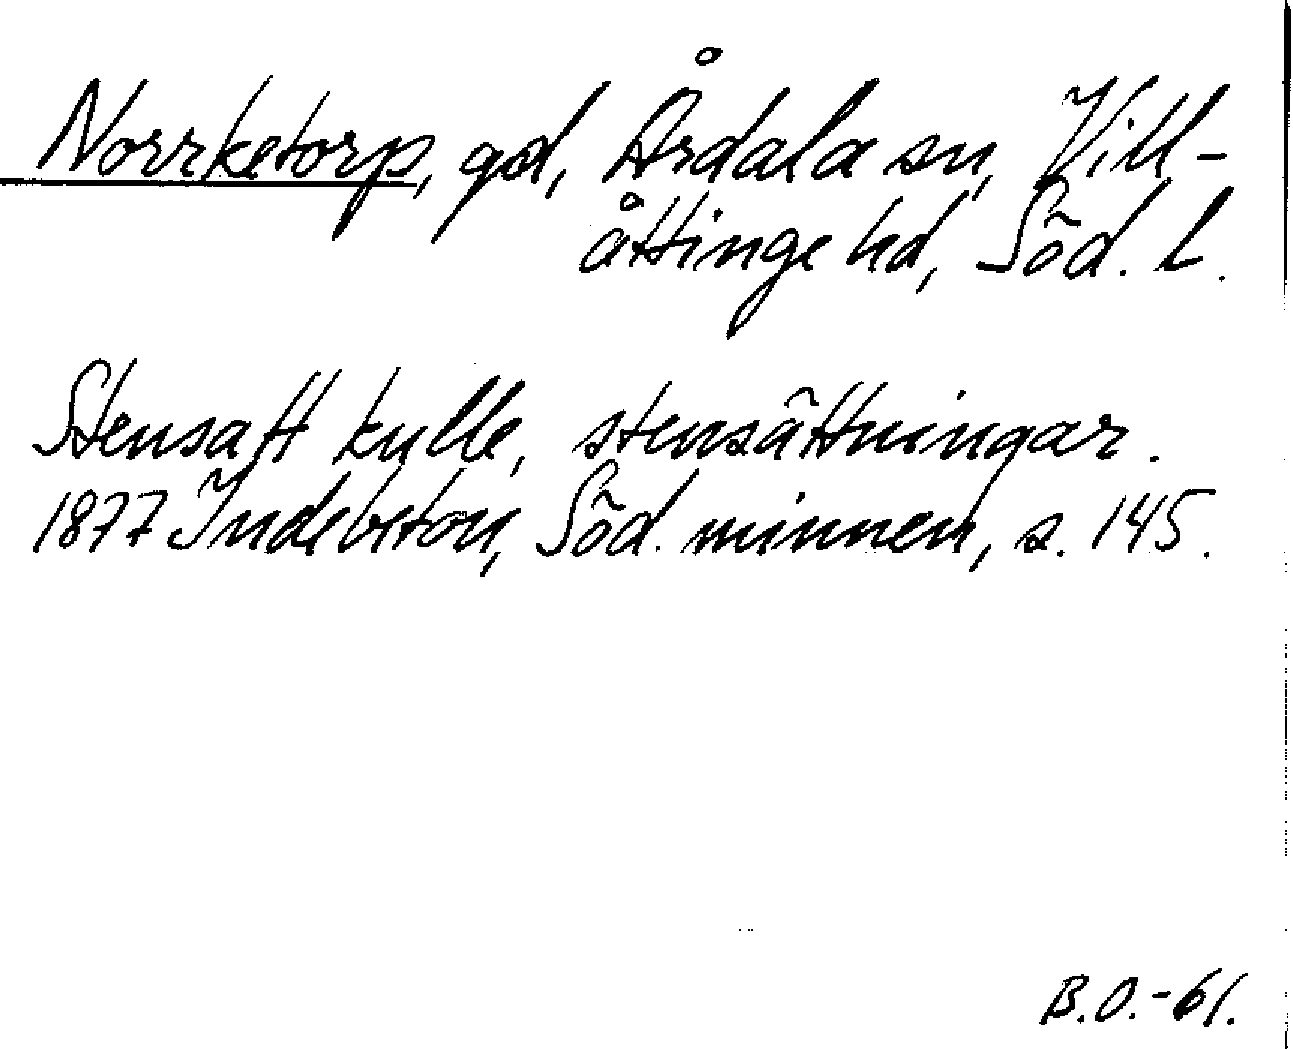 Norrketorp, gd, Årdala sn, Vill-
åttinge hd, Söd. l.
Stensatt kulle, stensättningar.
1877 Indebetou, Söd. minnen, s. 145.
B.O.-61.